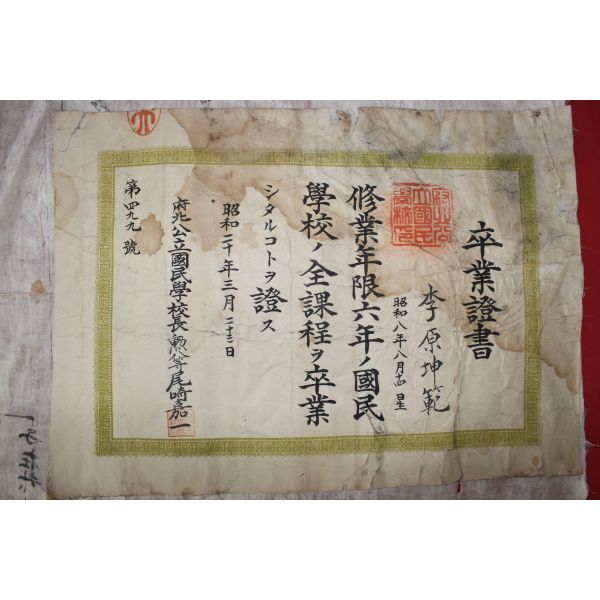 卒業證書
李原坤範
昭和八年八月十四日生
修業年限六年ノ國民
學校ノ全課程ヲ卒業
シタルコトヲ證ス
昭和二十年三月二十三日
府北公立國民學校長勲八等尾崎嘉一
第四九九號